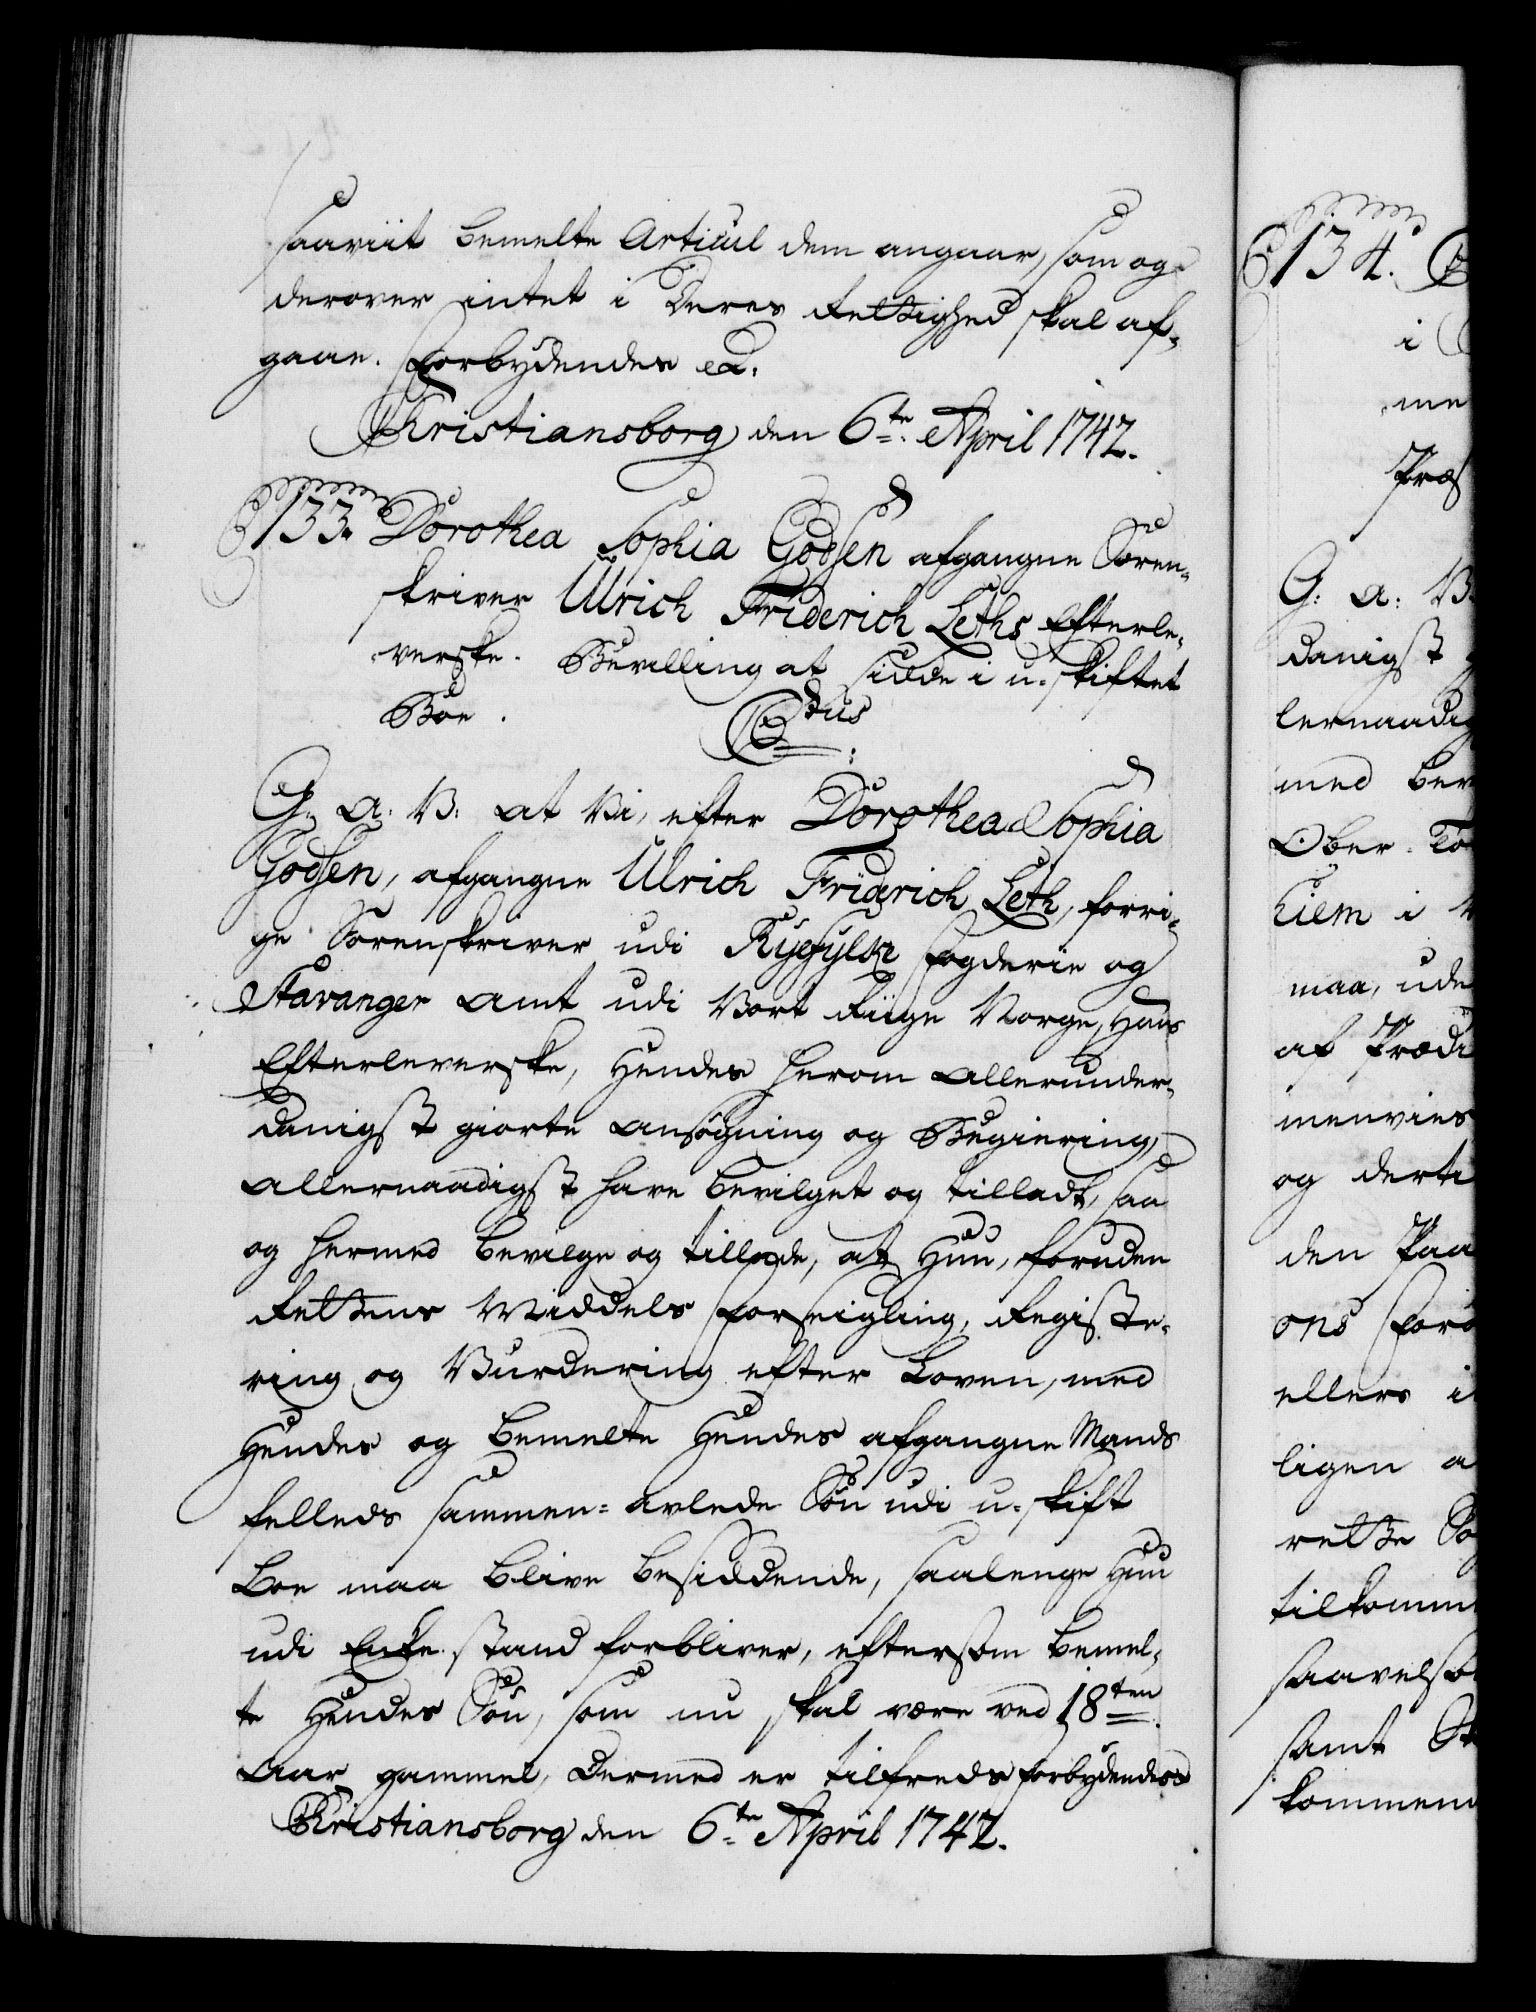 saaviit bemelte Articul dem angaar, som og
derover intet i Deres Rettighed skal af-
gaae. Forbydendes &c.
Christiansborg den 6te April 1742.
133. Dorothea Sophia Godsen afgangne Soren-
skriver Ulrich Friderich Leths Efterle-
verske. Bevilling at sidde i u-skiftet
Boe.
G: A: V: at Vi, efter Dorothea Sophia
Godsen, afgangne Ulrich Friderich Leth, forri-
ge Sorenskriver udi Ryefylke Fogderie og
Stavanger Amt udi Vort Riige Norge, Hans
Efterleverske, Hendes herom allerunder-
danigst giorte Ansøgning og Begiering,
allernaadigst have bevilget og tilladt, saa
og hermed bevilge og tillade, at Hun, foruden
Rettens Middels Forseigling, Registe-
ring og Vurdering efter Loven, med
Hendes og bemelte Hendes afgangne Mands
felleds sammen-avlede Søn udi u-skift
Boe maa blive besiddende, saalenge Hun
udi Enke-stand forbliver, eftersom bemel-
te Hendes Søn, som nu skal være ved 18ten
Aar gammel, dermed er tilfreds forbydendes
Christiansborg den 6te April 1742.
134.
i
me
Præs
G: A: V:
danigst
lernaadig
med bev
Ober-To
hiem i
maa, ude
af Prædi
menvies
og derti
den Paa
ons Foro
ellers i
ligen a
rette So
tilkomm
saavelso
samt
kommen